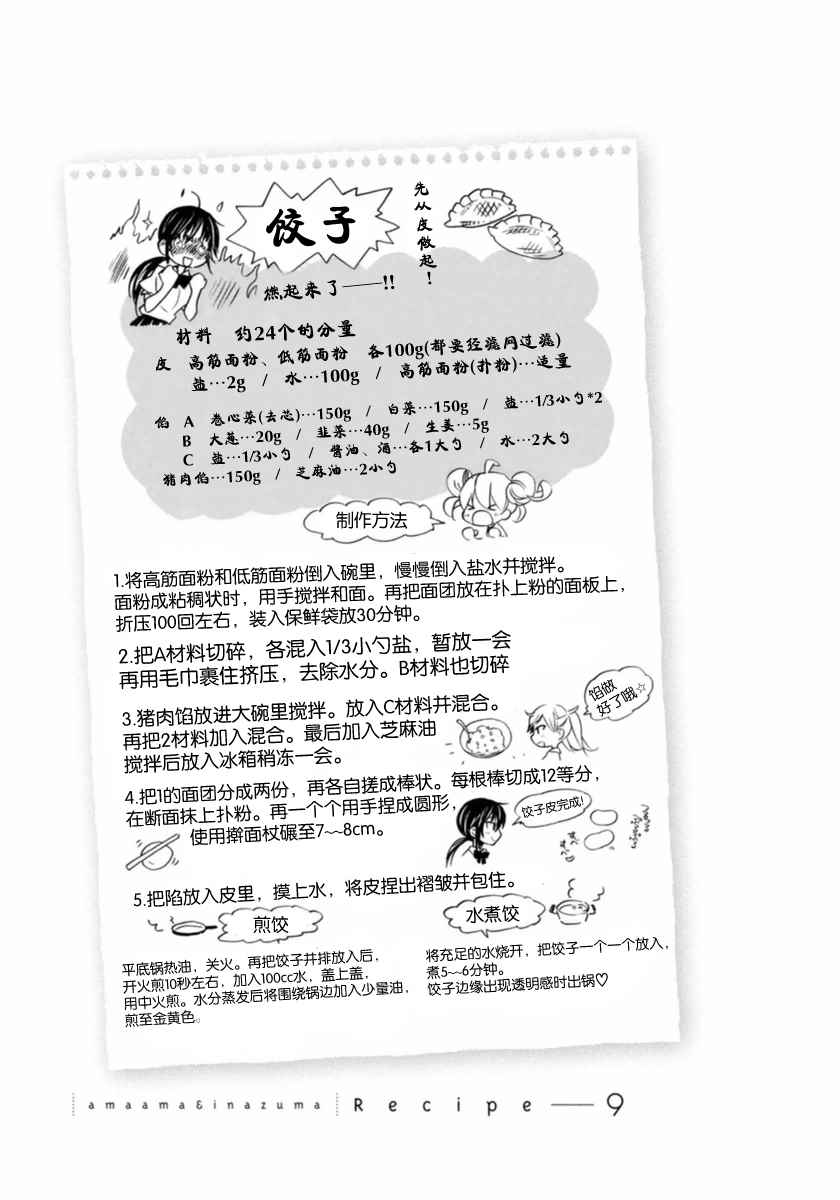 饺子
先从皮做起!
燃起来了——!!
材料 约24个的分量
皮 高筋面粉、低筋面粉 各100g(都要经滤网过滤)
盐…2g / 水…100g / 高筋面粉(扑粉)…适量
馅 A 卷心菜(去芯)…150g / 白菜…150g / 盐…1/3小勺*2
B 大葱…20g / 韭菜…40g / 生姜…5g
C 盐…1/3小勺 / 酱油、酒…各1大勺 / 水…2大勺
猪肉馅…150g / 芝麻油…2小勺
制作方法
1.将高筋面粉和低筋面粉倒入碗里，慢慢倒入盐水并搅拌。
面粉成粘稠状时，用手搅拌和面。再把面团放在扑上粉的面板上，
折压100回左右，装入保鲜袋放30分钟。
2.把A材料切碎，各混入1/3小勺盐，暂放一会
再用毛巾裹住挤压，去除水分。B材料也切碎
3.猪肉馅放进大碗里搅拌。放入C材料并混合。
再把2材料加入混合。最后加入芝麻油
搅拌后放入冰箱稍冻一会。
馅做
好了哦☆
4.把1的面团分成两份，再各自搓成棒状。每根棒切成12等分，
在断面抹上扑粉。再一个个用手捏成圆形，
使用擀面杖碾至7~~8cm。
饺子皮完成!
5.把陷放入皮里，摸上水，将皮捏出褶皱并包住。
煎饺
平底锅热油，关火。再把饺子并排放入后，
开火煎10秒左右，加入100cc水，盖上盖，
用中火煎。水分蒸发后将围绕锅边加入少量油，
煎至金黄色。
水煮饺
将充足的水烧开，把饺子一个一个放入，
煮5~~6分钟。
饺子边缘出现透明感时出锅♡
amaama&inazuma Recipe — 9